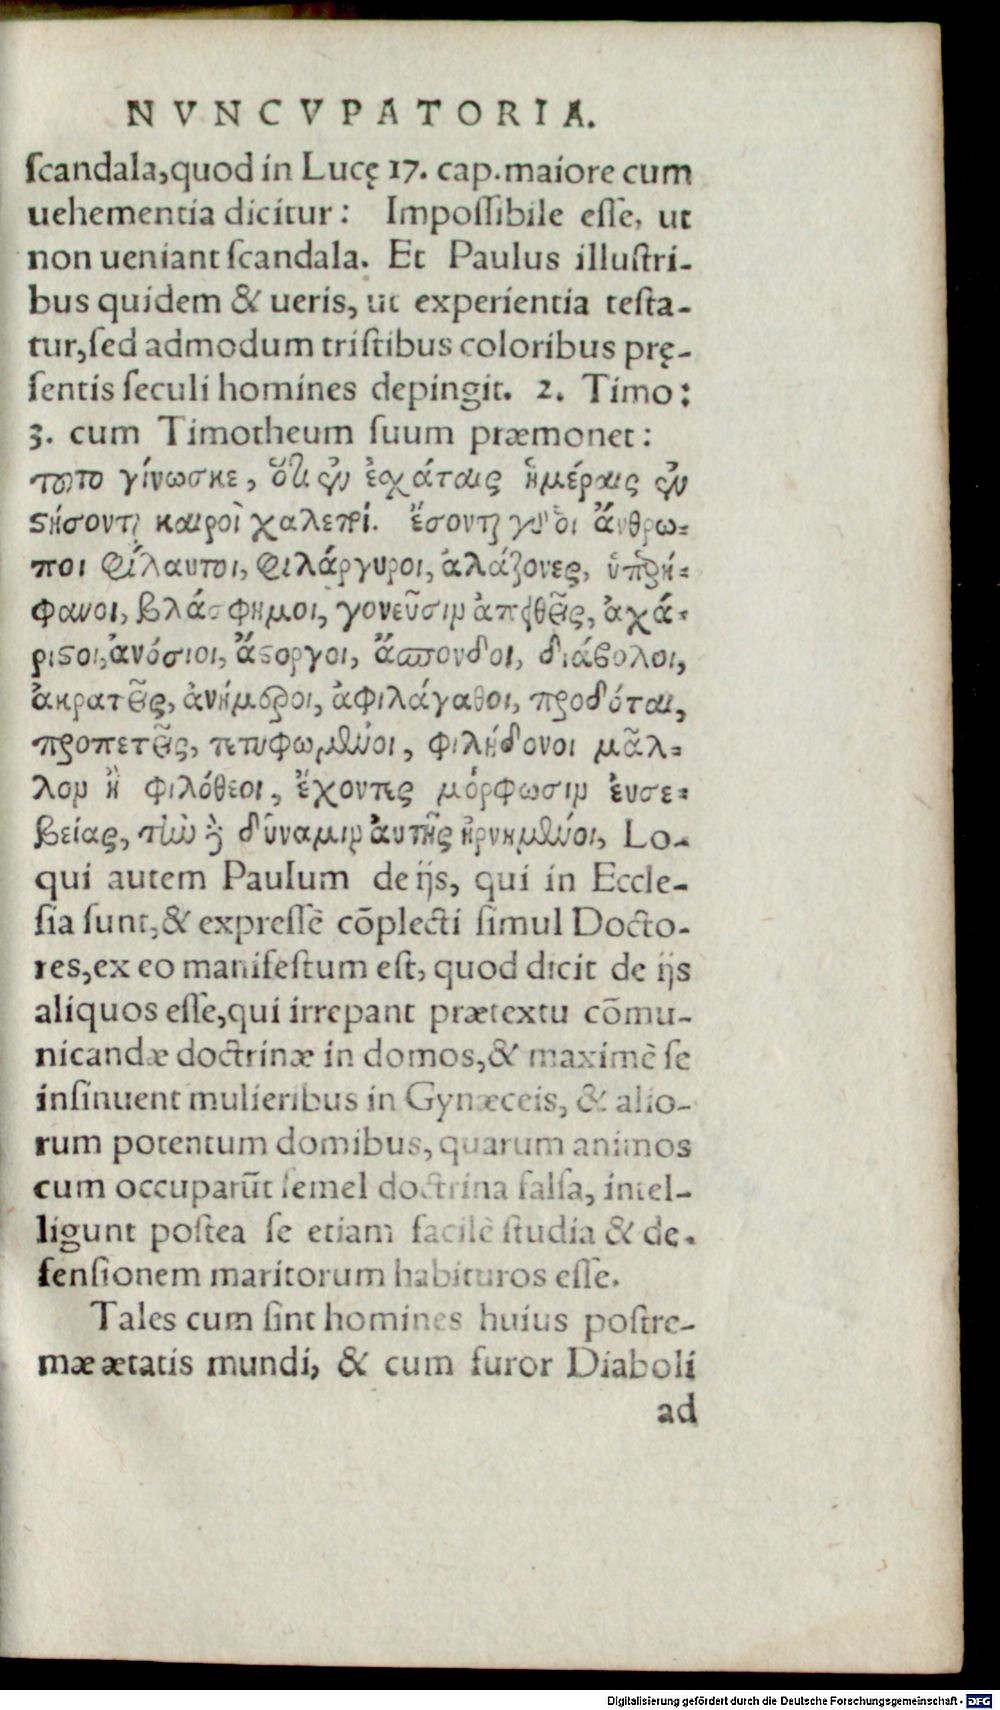 NVNCVPATORIA.
ſcandala,quod in Lucę 17. cap.maiore cum
uehementia dicitur: Impoſſibile eſſe, ut
non ueniant ſcandala. Et Paulus illuſtri-
bus quidem & ueris, ut experientia teſta-
tur,ſed admodum triſtibus coloribus prę-
ſentis ſeculi homines depingit. 2. Timo:
3. cum Timotheum ſuum præmonet:
τοῦτο γίνωσκε, ὅτι ἐν ἐσχάταις ἡμέραις ἐν
ϛήσονται καιροὶ χαλεποί. ἔσονται γὰρ οἱ ἄνθρω-
ποι φίλαυτοι, φιλάργυροι, ἀλάζονες, ὑπερή-
φανοι, βλάσφημοι, γονεῦσιν ἀπειθεῖς, ἀχά-
ριϛοι,ἀνόσιοι, ἄϛοργοι, ἄσπονδοι, διάβολοι,
ἀκρατεῖς, ἀνήμεροι, ἀφιλάγαθοι, προδόται,
προπετεῖς, τετυφωμένοι, φιλήδονοι μᾶλ-
λον ἢ φιλόθεοι, ἔχοντες μόρφωσιν ἐυσε-
βείας, τὴν δὲ δύναμιν ἀυτῆς ἠρνημένοι, Lo-
qui autem Paulum de ijs, qui in Eccle-
ſia ſunt,& expreſsè cōplecti ſimul Docto-
res,ex eo manifeſtum eſt, quod dicit de ijs
aliquos eſſe,qui irrepant prætextu cōmu-
nicandæ doctrinæ in domos,& maximè ſe
inſinuent mulieribus in Gynæceis, & alio-
rum potentum domibus, quarum animos
cum occuparūt ſemel doctrina falſa, intel-
ligunt poſtea ſe etiam facilè ſtudia & de-
fenſionem maritorum habituros eſſe.
Tales cum ſint homines huius poſtre-
mæ ætatis mundi, & cum furor Diaboli
ad
Digitalisierung gefördert durch die Deutsche Forschungsgemeinschaft - DFG